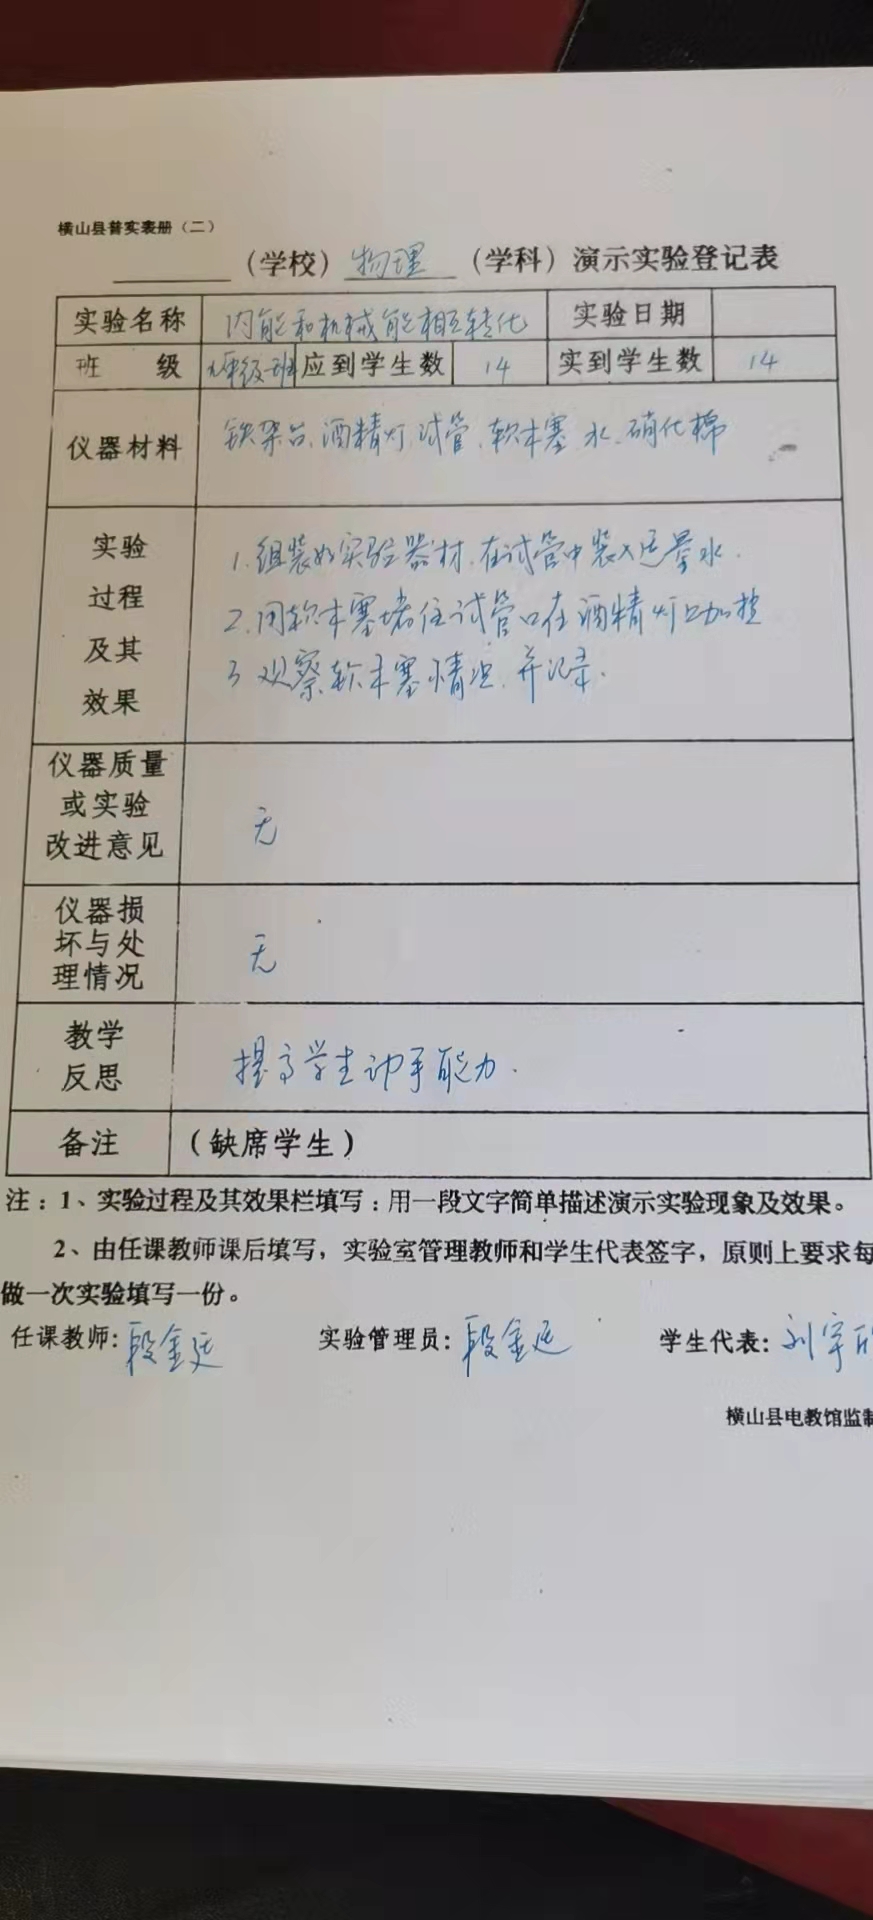 横山县普实表册（二）
（学校）物理（学科）演示实验登记表
实验名称 内能和机械能相互转化 实验日期
班 级 九年级一班 应到学生数 14 实到学生数 14
仪器材料 铁架台、酒精灯、试管、软木塞、水、硝化棉
实验 过程 及其 效果
1.组装好实验器材,在试管中装入适量水.
2.用软木塞堵住试管口在酒精灯上加热
3 观察软木塞情况,并记录.
仪器质量
或实验
改进意见 无
仪器损
坏与处
理情况 无
教学
反思 提高学生动手能力.
备注 （缺席学生）
注：1、实验过程及其效果栏填写：用一段文字简单描述演示实验现象及效果。
2、由任课教师课后填写，实验室管理教师和学生代表签字，原则上要求每
做一次实验填写一份。
任课教师:段金廷 实验管理员:段金廷 学生代表:刘宇
横山县电教馆监制